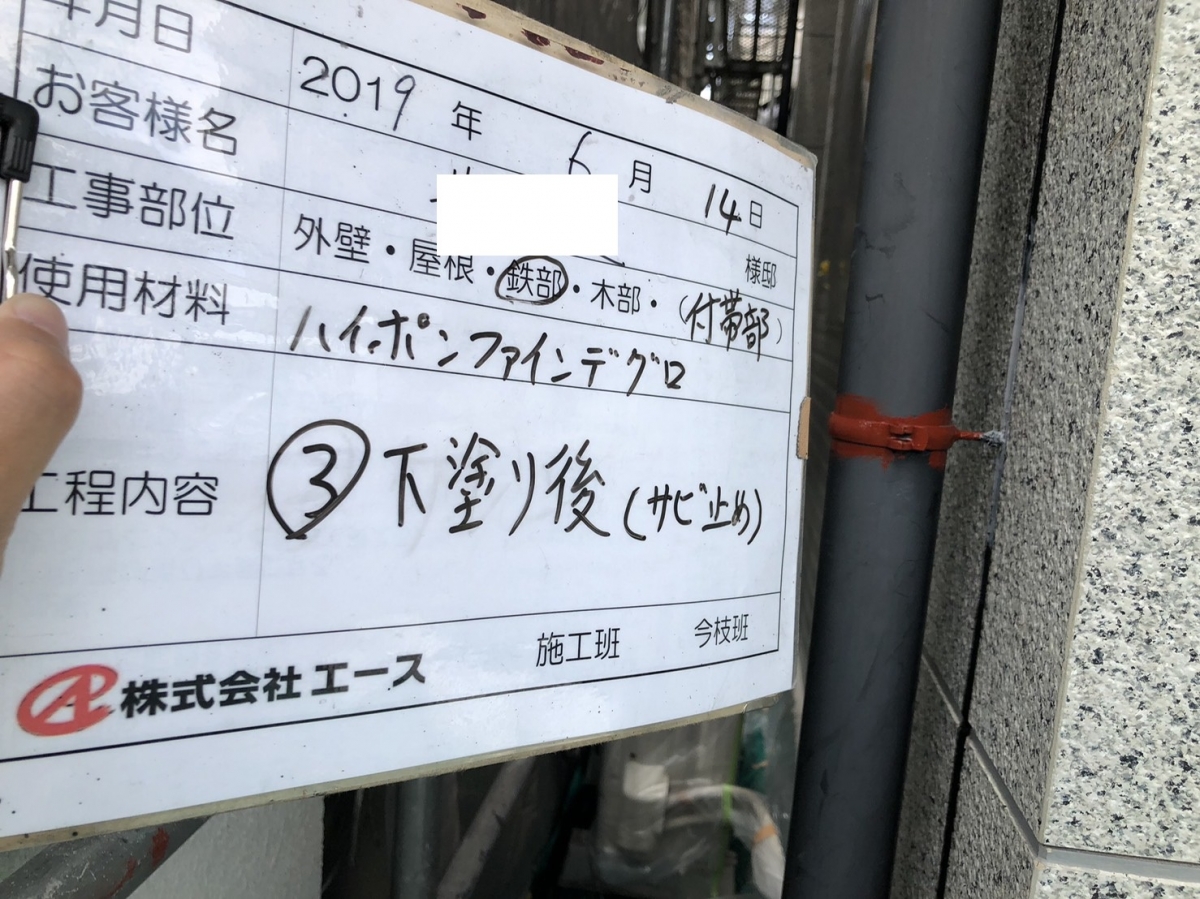 年月日 2019年 6月 14日
お客様名 様邸
工事部位 外壁・屋根・鉄部・木部・(付帯部)
使用材料 ハイポンファインデグロ
工程内容 ③下塗り後(サビ止め)
株式会社エース 施工班 今枝班